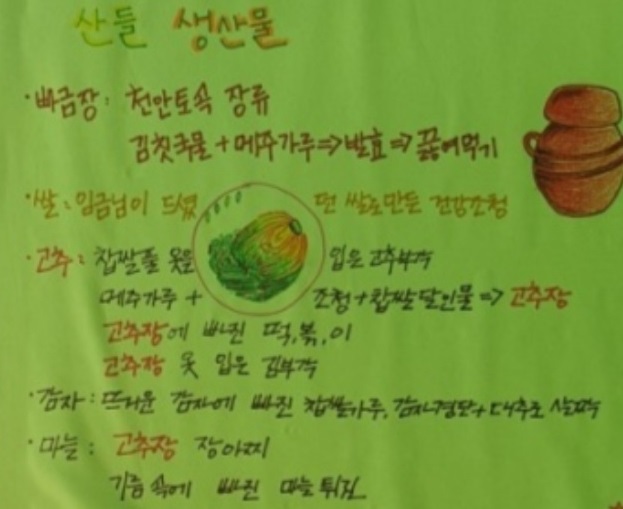 산들 생산물
·빠금장: 천안토속 장류
김칫국물+메주가루=>발효=>끓여먹기
·쌀:임금님이 드셨던 쌀로만든 건강조청
·고추: 찹쌀풀 옷을 입은 고추부각
메주가루 + 조청+찹쌀달인물=> 고추장
고추장에 빠진 떡,볶,이
고추장 옷 입은 김부각
·감자:뜨거운 감자에 빠진 찹쌀가루,감자경단+대추조
·마늘: 고추장 장아찌
기름속에 빠진 마늘튀김